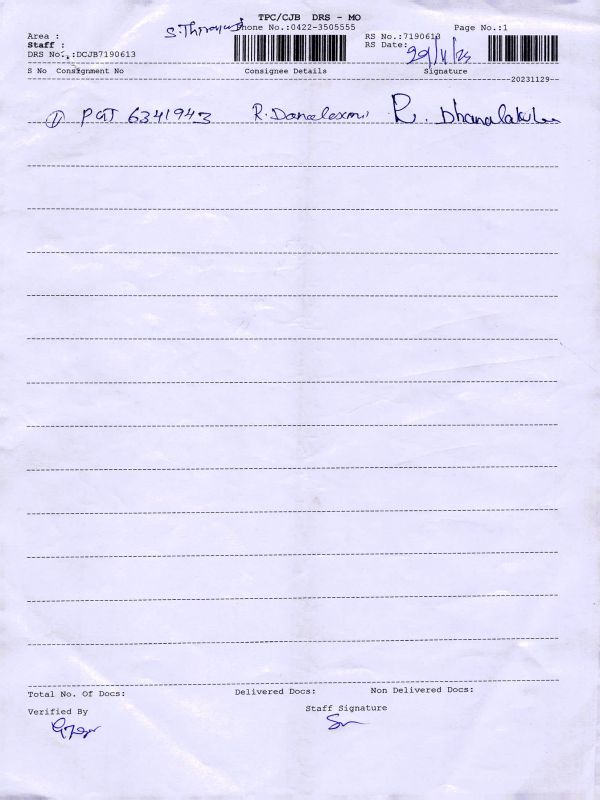 TPC/CJB DRS - MO
Phone No.:0422-3505555
Page No.:1
Area :
Staff :
DRS No.:DCJB7190613
RS No.:7190613
RS Date: 29/11/23
S No Consignment No Consignee Details Signature
20231129
1 PGT 6341943 R. Danalexmi R. Dhanalakshmi
Total No. Of Docs: Delivered Docs: Non Delivered Docs:
Verified By Staff Signature